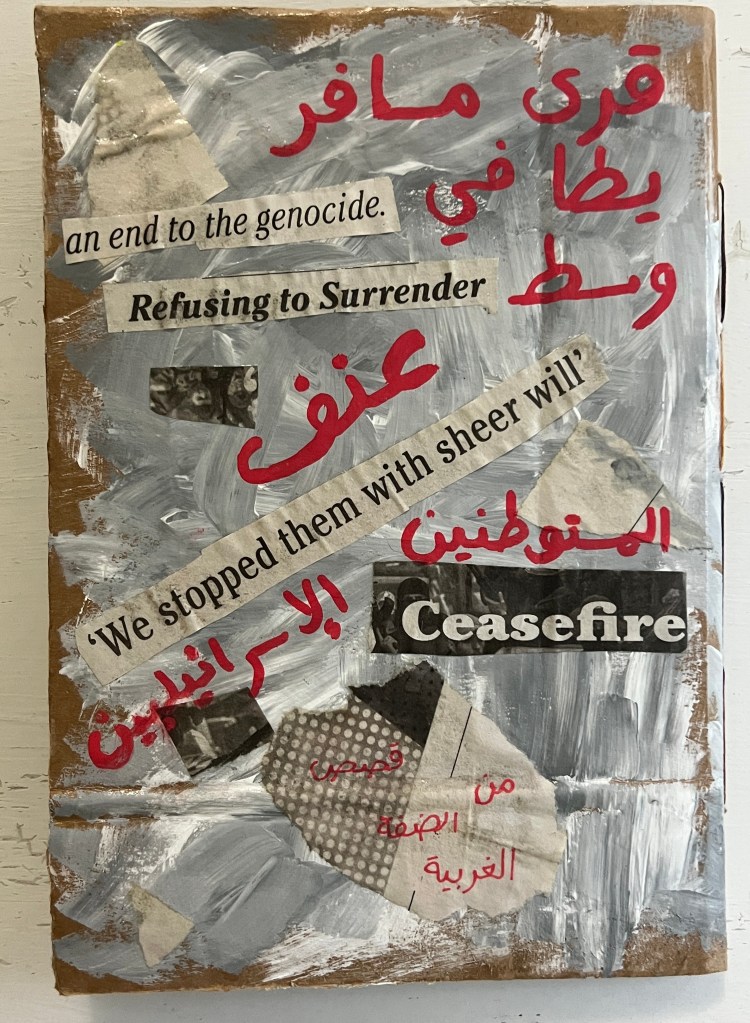 قرى مسافر
يطا في
an end to the genocide.
وسط
Refusing to Surrender
عنف
‘We stopped them with sheer will’
المستوطنين
الإسرائيليين
Ceasefire
قصص
من
الضفة
الغربية